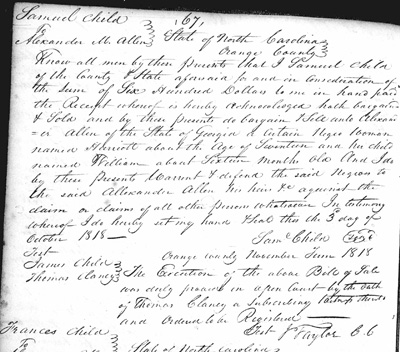 Samuel Child
To 67
Alexander M. Allen State of North Carolina
Orange County
Know all men by these Presents that I Samuel Child
of the County & State aforesaid for and in Consideration of
the Sum of Six Hundred Dollars to me in hand paid
the Receipt whereof is hereby acknowledged hath bargained
& Sold and by these presents do bargain & Sell unto Alexan
=der Allen of the State of Georgia a Certain Negro Woman
named Harriott about the Age of Twenteen and his child
named William about Sixteen months Old And I do
by these Presents Warrant & defend the said Negroes to
the said Allexander Allen his heirs &c against the
claim or claims of all other persons whatsoever In testimony
whereof I do hereby set my hand & Seal this the 3 day of
October 1818—
Test Saml Child Seal
James Child Orange county November Term 1818
Thomas Clancy The Execution of the above Bill of Sale
was duly proved in open Court by the oath
of Thomas Clancy a Subscribing witness thereto
and Ordered to be Registered
Test J Taylor C.C
Frances Child
To State of North Carolina